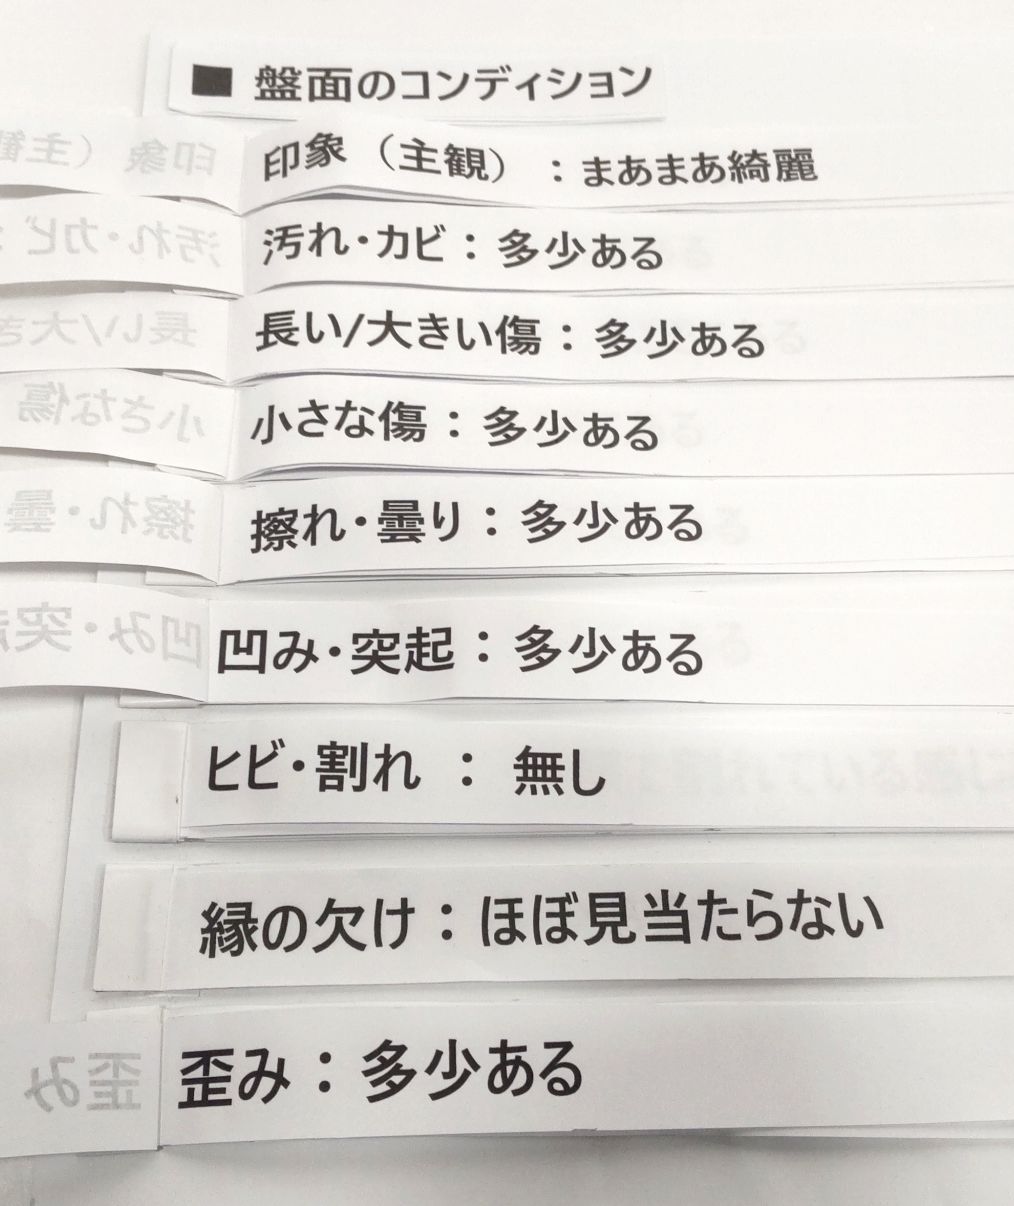 ■ 盤面のコンディション
印象（主観）：まあまあ綺麗
汚れ・カビ：多少ある
長い/大きい傷：多少ある
小さな傷：多少ある
擦れ・曇り：多少ある
凹み・突起：多少ある
ヒビ・割れ ： 無し
縁の欠け：ほぼ見当たらない
歪み：多少ある